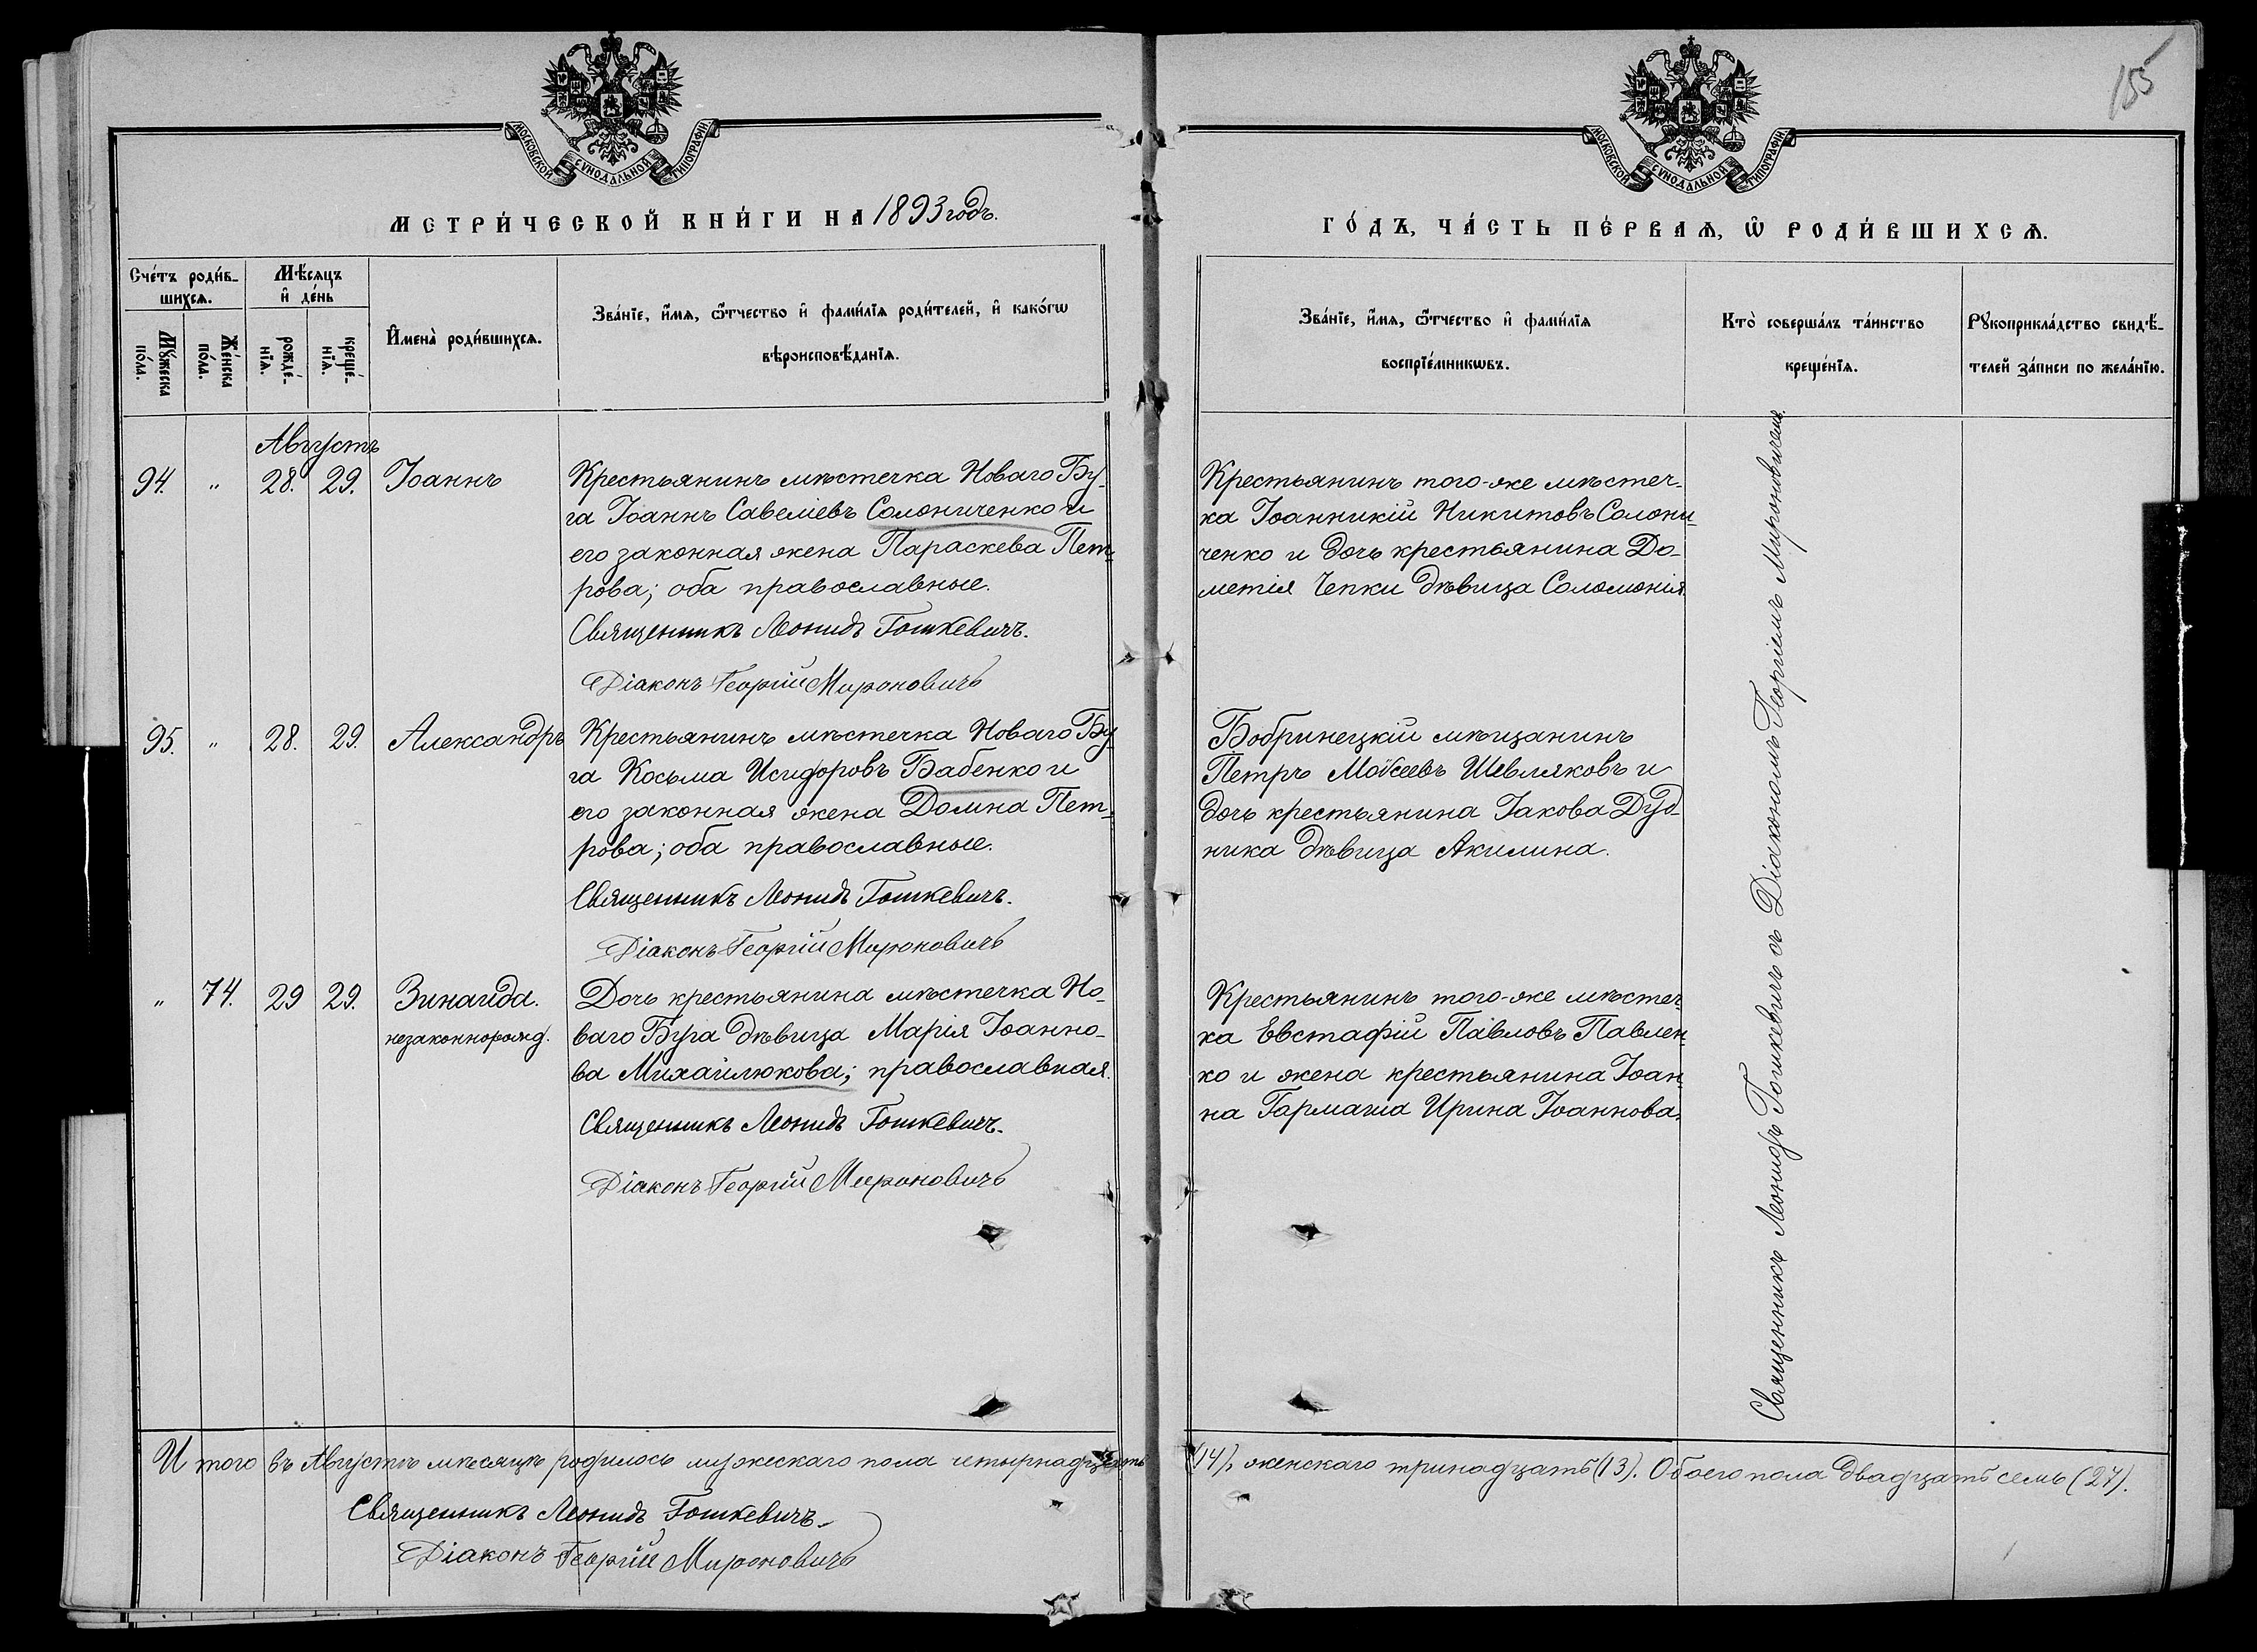 155
МОСКОВСКОЙ СѴНОДАЛЬНОЙ ТИПОГРАФІИ
МОСКОВСКОЙ СѴНОДАЛЬНОЙ ТИПОГРАФІИ
МЕТРИ́ЧЕСКОЙ КНИ́ГИ НА 1893 годъ.
ГО́ДЪ, ЧА́СТЬ ПЕ́РВАѦ, Ѡ РОДИ́ВШИХСѦ.
Сче́тъ роди́в-
шихсѧ.
Мꙋ́жеска
по́ла.
Же́нска
по́ла.
Мѣ́сѧцъ
и҆ де́нь
рожде́-
нїѧ.
креще́-
нїѧ.
И҆мена̀ роди́вшихсѧ.
Зва́нїе, и҆́мѧ, ѻ҆́тчество и҆ фами́лїѧ роди́телей, и҆ како́гѡ
вѣроисповѣ́данїѧ.
Зва́нїе, и҆́мѧ, ѻ҆́тчество и҆ фами́лїѧ
воспрїе́мникѡвъ.
Кто̀ соверша́лъ та́инство
креще́нїѧ.
Рꙋкоприкла́дство свидѣ́-
телей за́писи по жела́нїю.
Августъ
94. " 28. 29. Іоаннъ
Крестьянинъ мѣстечка Новаго Бу-
га Іоаннъ Савеліевъ Солониченко и
его законная жена Параскева Пет-
рова; оба православные.
Священникъ Леонидъ Гошкевичъ.
Діаконъ Георгій Мироновичъ
Крестьянинъ того-же мѣстеч-
ка Іоанникій Никитовъ Солони-
ченко и дочь крестьянина До-
метія Чепки дѣвица Соломонія.
95. " 28. 29. Александръ
Крестьянинъ мѣстечка Новаго Бу-
га Косьма Исидоровъ Бабенко и
его законная жена Домна Пет-
рова; оба православные.
Священникъ Леонидъ Гошкевичъ.
Діаконъ Георгій Мироновичъ
Бобринецкій мѣщанинъ
Петръ Моѵсеевъ Шевляковъ и
дочь крестьянина Іакова Дуд-
ника дѣвица Акилина.
" 74. 29 29. Зинаида.
незаконнорожд.
Дочь крестьянина мѣстечка Но-
ваго Буга дѣвица Марія Іоанно-
ва Михайлюкова; православная.
Священникъ Леонидъ Гошкевичъ.
Діаконъ Георгій Мироновичъ
Крестьянинъ того-же мѣстеч-
ка Евстафій Павловъ Павлен-
ко и жена крестьянина Іоан-
на Гармаша Ирина Іоаннова.
Священникъ Леонидъ Гошкевичъ съ Діакономъ Георгіемъ Мироновичемъ.
Итого въ Августѣ мѣсяцѣ родилось мужескаго пола четырнадцать (14), женскаго тринадцать (13). Обоего пола двадцать семь (27).
Священникъ Леонидъ Гошкевичъ.
Діаконъ Георгій Мироновичъ